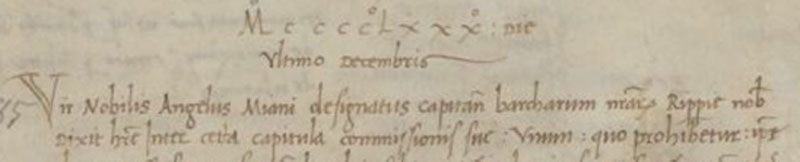 Mº c c c cº L x x xº : die
Vltimo decembris
Vir Nobilis Angelus Miani designatus capitan̄ barcharum Rippe nob̄
dixit hr̄e Inter cetera capitula commissionis sue : Vnum : quo prohibetur : ip̄e